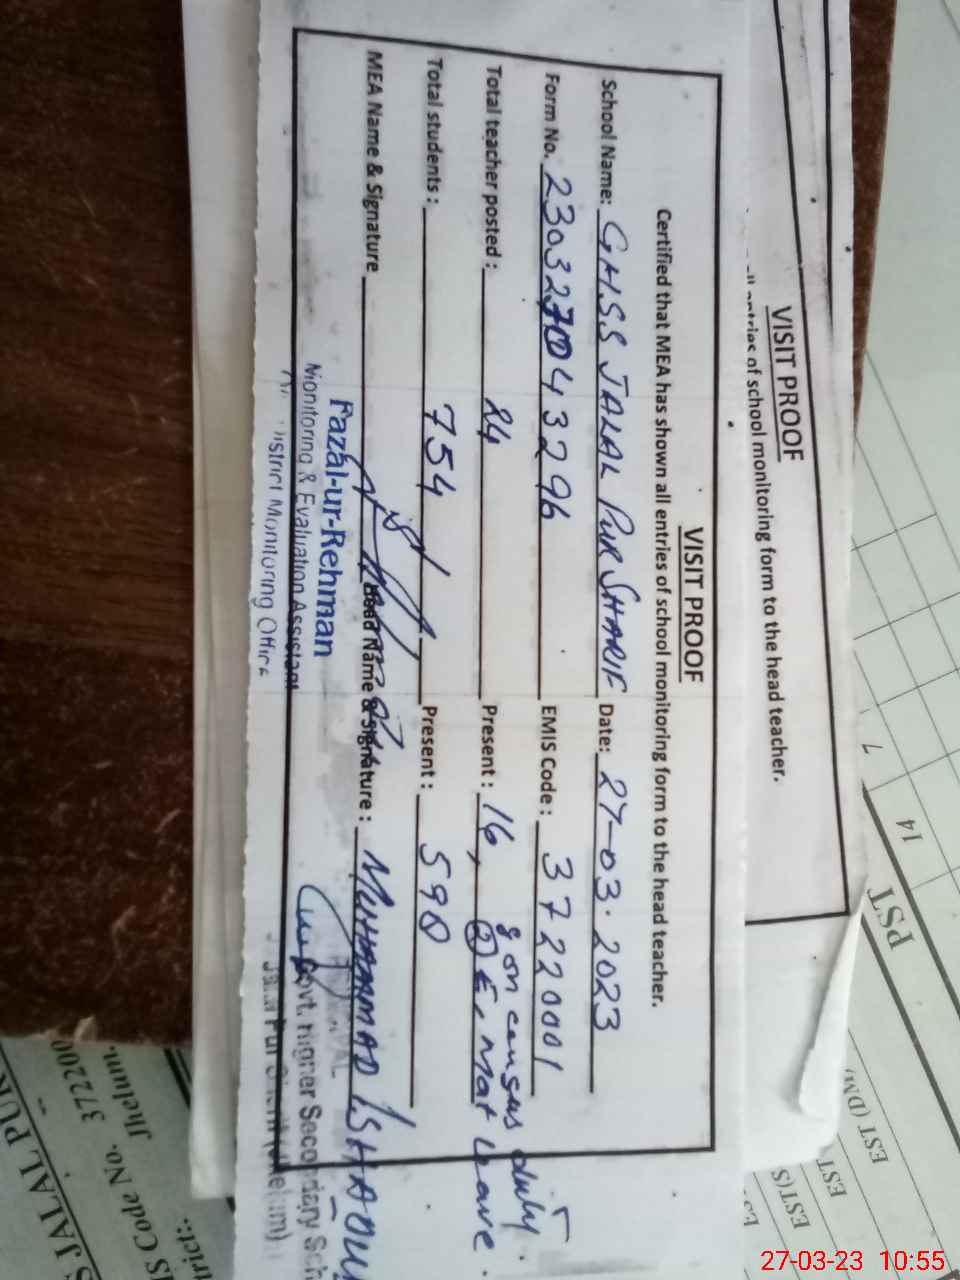 VISIT PROOF
of school monitoring form to the head teacher.
VISIT PROOF
Certified that MEA has shown all entries of school monitoring form to the head teacher.
School Name: GHSS JALAL PUR SHARIF Date: 27-03.2023
Form No. 23032704 3296 EMIS Code: 37220001
8 on census duty.
Total teacher posted: 24 Present: 16, (2) E, Mat Leave.
Total students: 754 Present: 590
MEA Name & Signature Head Name & Signature: MUHAMMAD ISHAQUE
Fazal-ur-Rehman
Monitoring & Evaluation Assistant
District Monitoring Office
Govt. Higher Secondary Sch
PST
14
7
EST (DM)
EST
EST(S)
S JALAL PUR
IS Code No. 372200
Jhelum.
trict:.
27-03-23 10:55